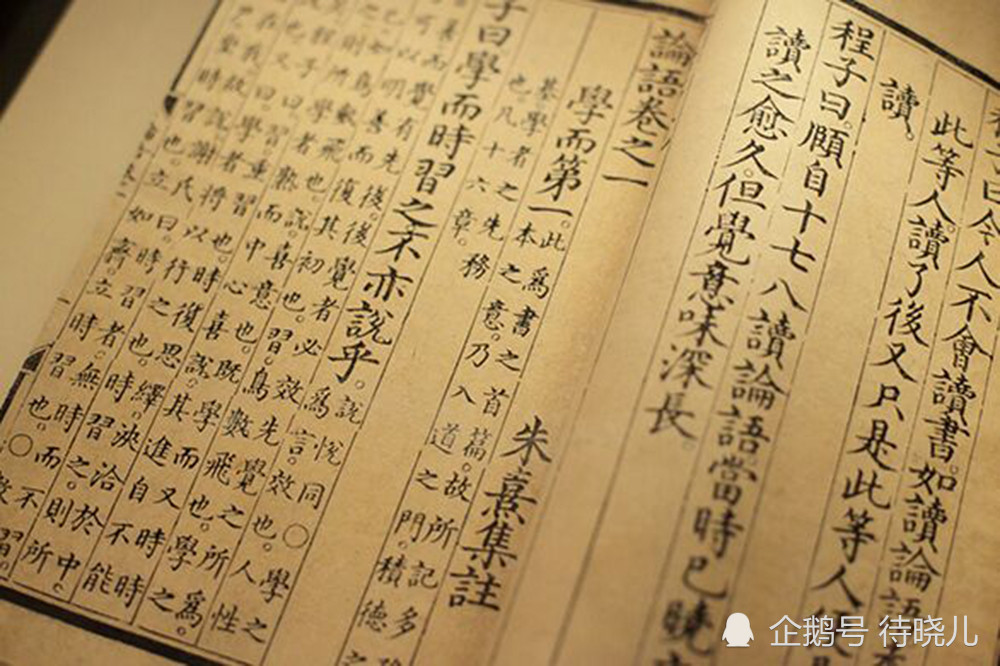 子曰今人不會讀書。如讀論語
此等人。讀了後又只是此等人
讀。
程子曰。頤自十七八讀論語當時已曉
讀之愈久。但覺意味深長。
論語卷之一
朱熹集註
學而第一。此爲書之首篇。故所記多
本之意。乃入道之門。積德
基。學者之先務
也。凡十六章。
子曰學而時習之不亦說乎。說悅同○學之
爲言。效也。人性
有先後。後覺者必效先覺之所爲。
可以明善而復其初也。習。鳥數飛也。學之
如鳥數飛也。說。喜意也。既學而又時
則所學者熟。而中心喜說。其進自不能
子曰。習。重習也。時復思繹。浹洽於中。
也又曰。學者將以行之也。時習之。則所
在我。故說。謝氏曰。時習者。無時而不習。
坐時習也。立如齊。立時習也。○
企鹅号 待晓儿